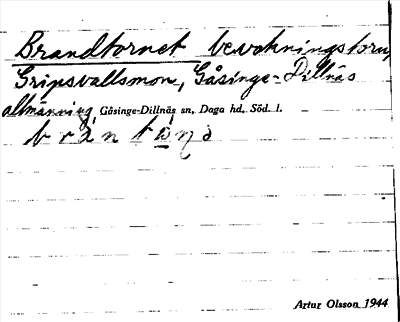 Brandtornet bevakningstorn,
Gripsvallsmon, Gåsinge-Dillnäs
allmänning, Gåsinge-Dillnäs sn, Daga hd, Söd. l.
Artur Olsson 1944